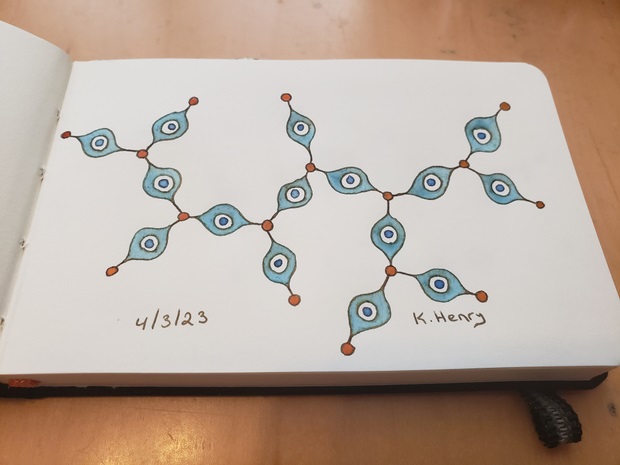 4/3/23
K. Henry